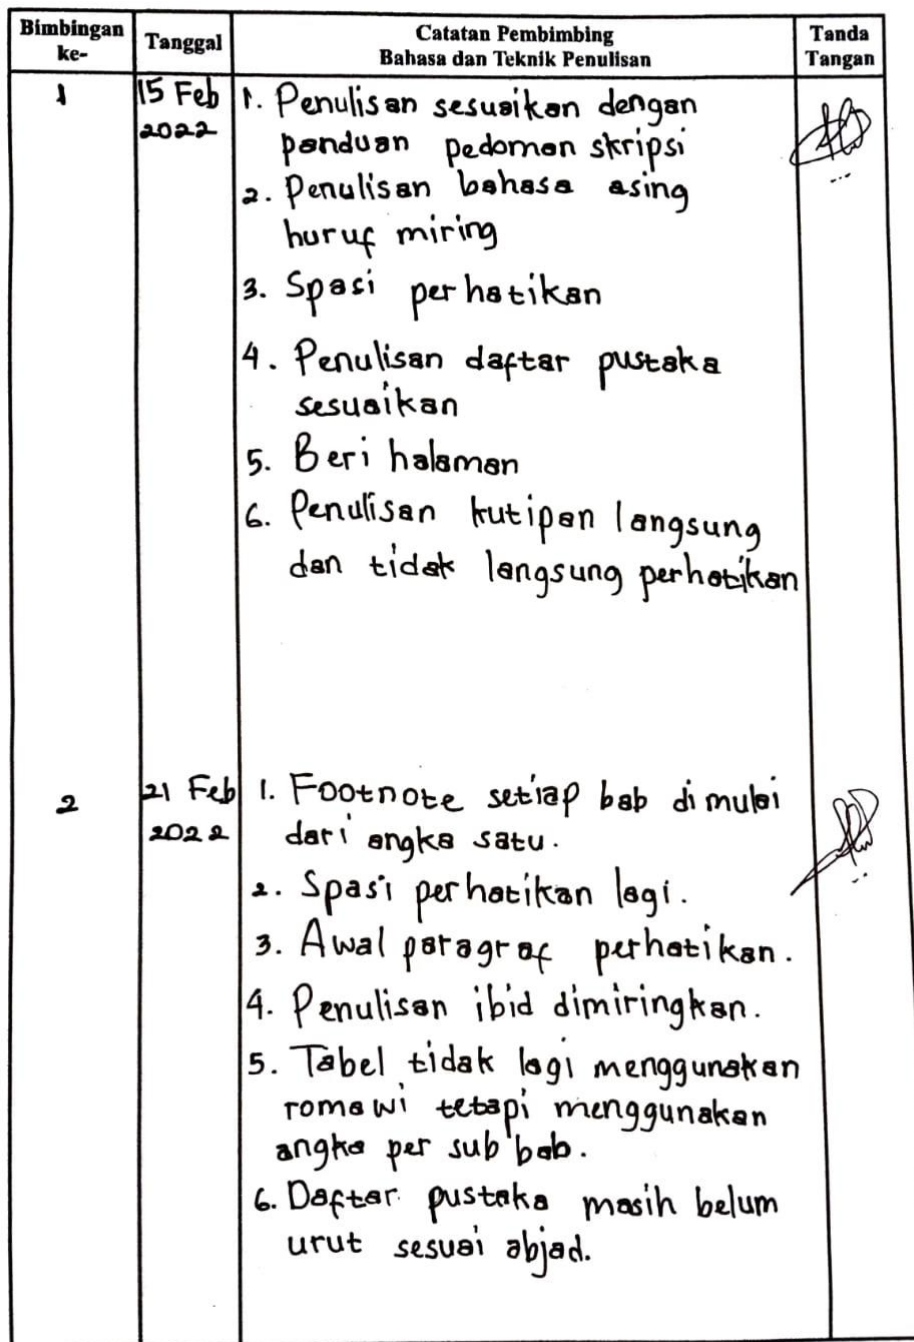 Bimbingan ke-
Tanggal
Catatan Pembimbing
Bahasa dan Teknik Penulisan
Tanda Tangan
1
15 Feb
2022
1. Penulisan sesuaikan dengan
panduan pedoman skripsi
2. Penulisan bahasa asing
huruf miring
3. Spasi perhatikan
4. Penulisan daftar pustaka
sesuaikan
5. Beri halaman
6. Penulisan kutipan langsung
dan tidak langsung perhatikan
2
21 Feb
2022
1. Footnote setiap bab dimulai
dari angka satu.
2. Spasi perhatikan lagi.
3. Awal paragraf perhatikan.
4. Penulisan ibid dimiringkan.
5. Tabel tidak lagi menggunakan
romawi tetapi menggunakan
angka per sub bab.
6. Daftar pustaka masih belum
urut sesuai abjad.